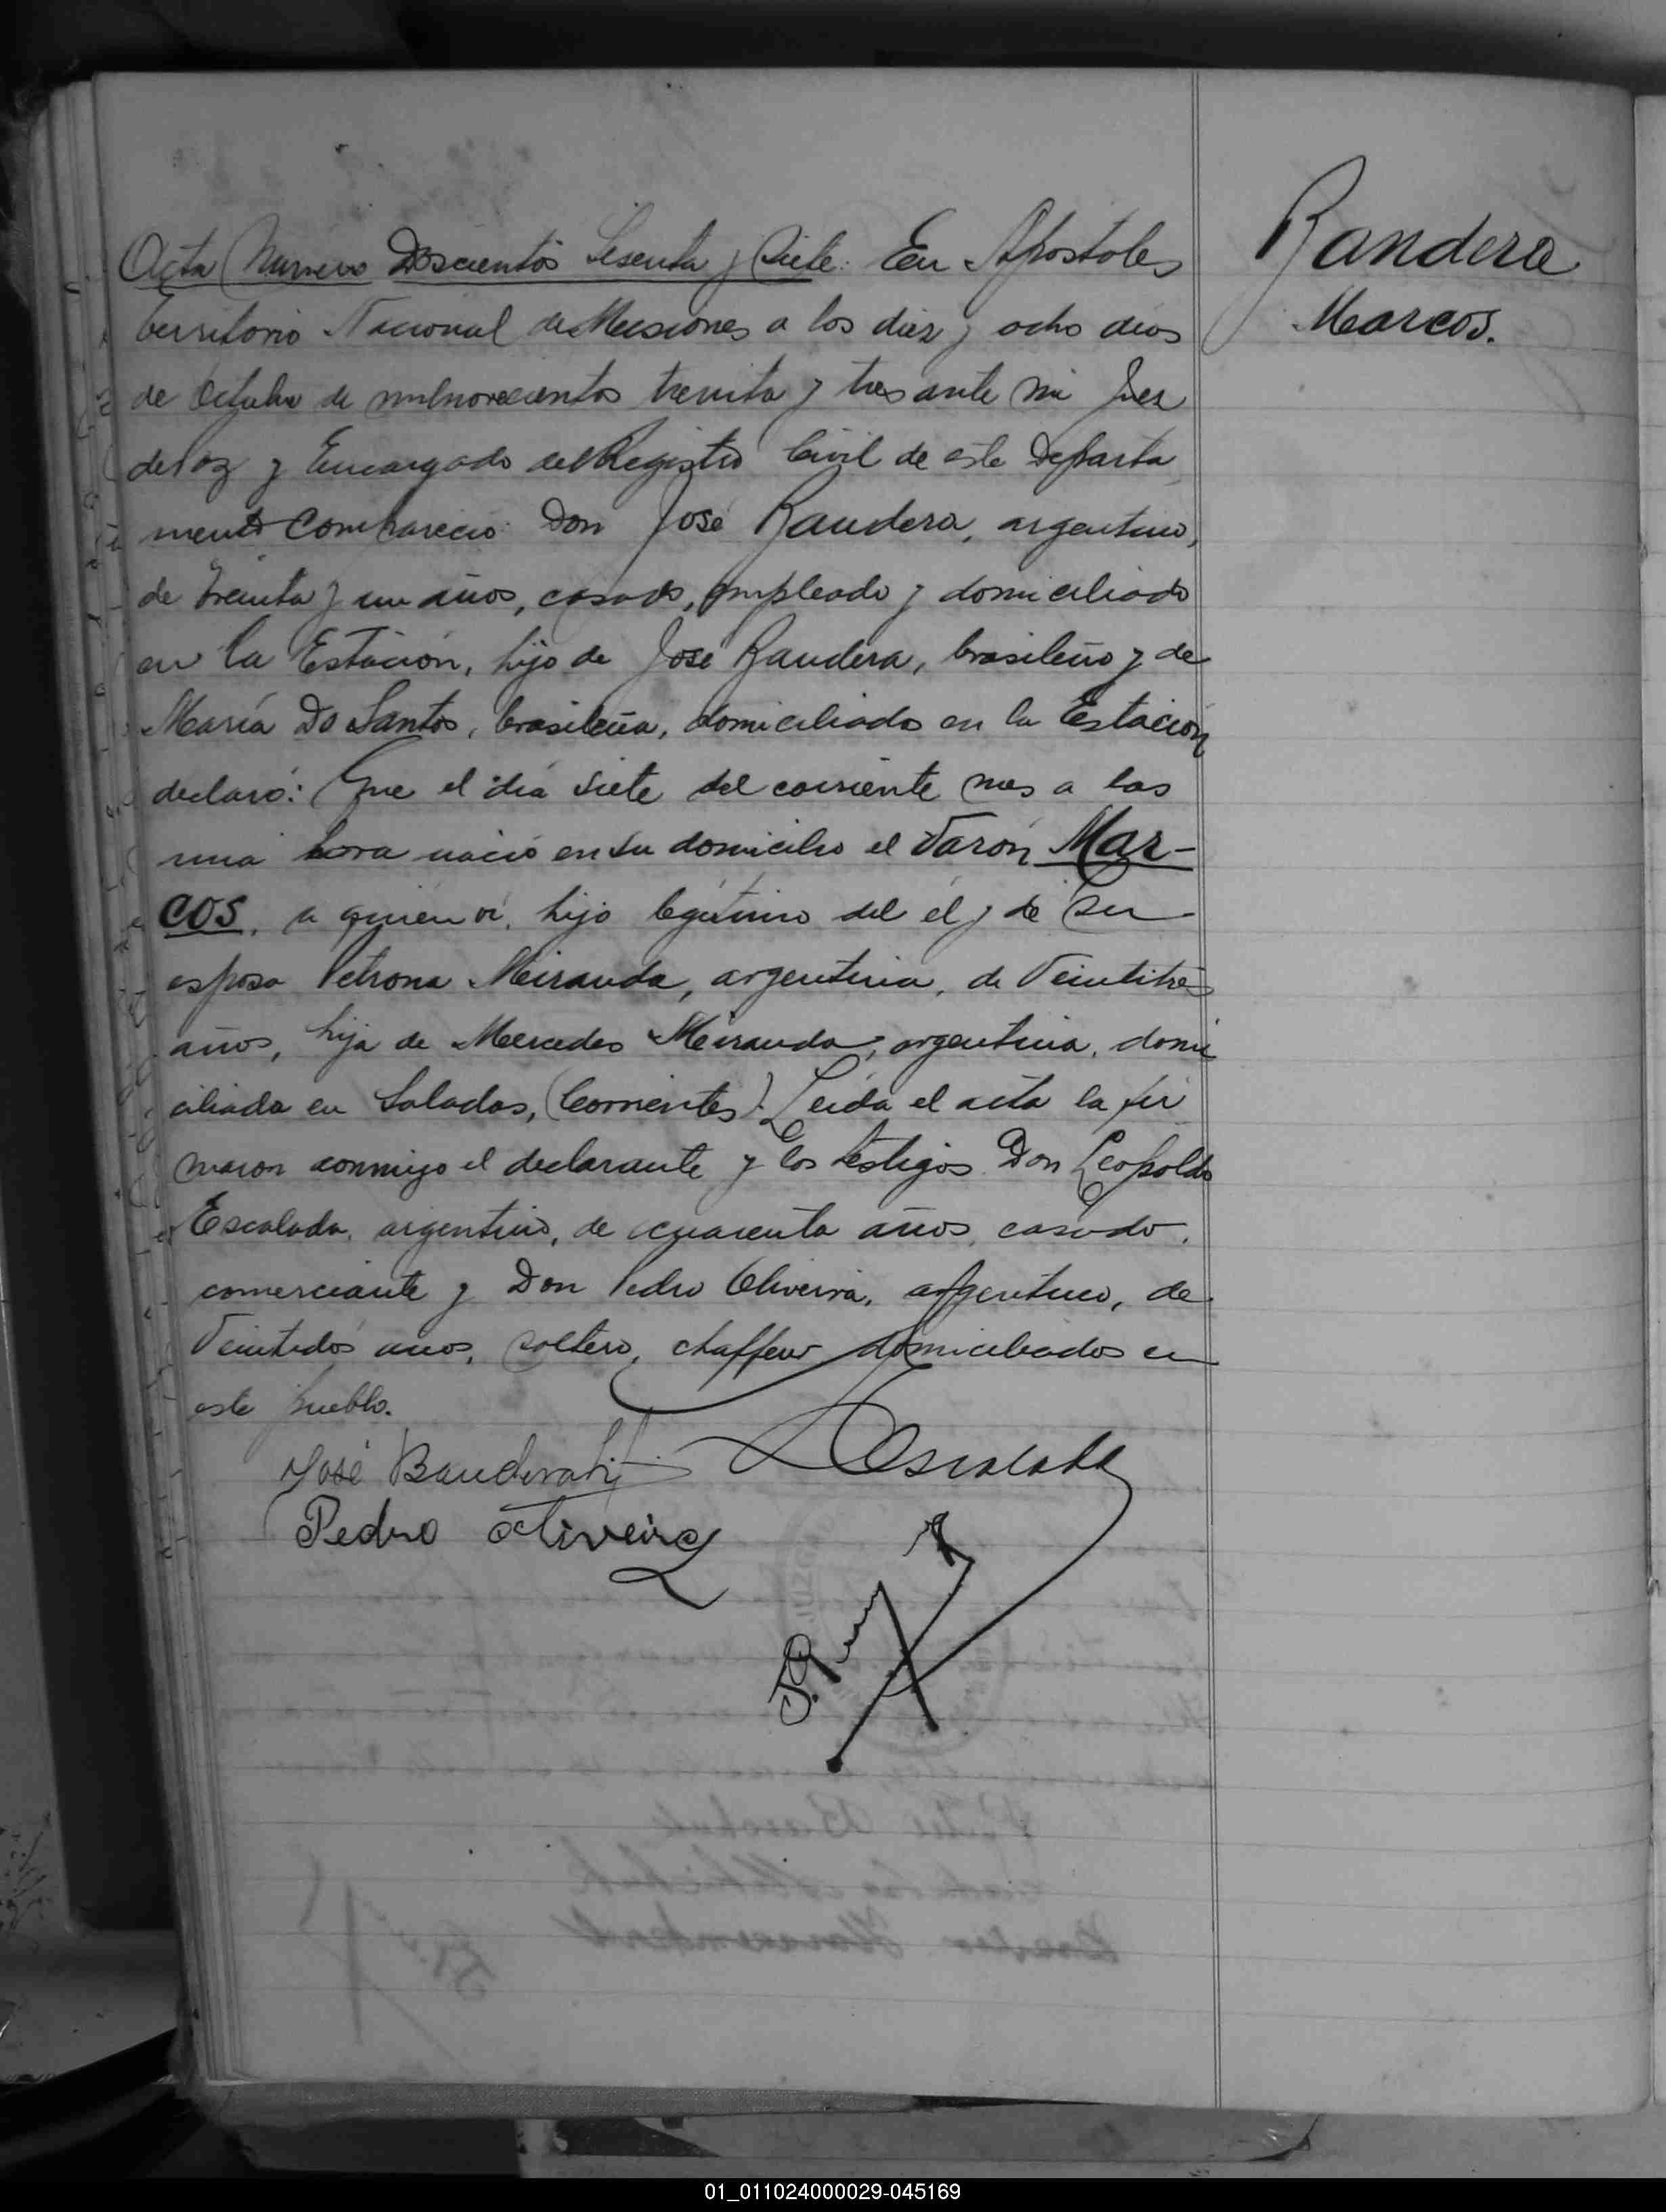 Bandera
Marcos.
Acta Número Doscientos Sesenta y Siete: En Apóstoles
territorio Nacional de Misiones a los diez y ocho dias
de Octubre de milnovecientos treinta y tres ante mi Juez
de Paz y Encargado del Registro Civil de este Departa
mento Compareció: Don José Bandera, argentino,
de treinta y un años, casado, empleado y domiciliado
en la Estación, hijo de José Bandera, brasileño y de
María Do Santos, brasileña, domiciliados en la Estación
declaró: Que el día siete del corriente mes a las
una hora nació en su domicilio el Varón Mar-
cos, a quien vi, hijo legítimo del él y de su
esposa Petrona Miranda, argentina, de Veintitrés
años, hija de Mercedes Miranda, argentina, domi
ciliada en Saladas, (Corrientes). Leída el acta la fir
maron conmigo el declarante y los testigos Don Leopoldo
Escalada, argentino, de cuarenta años, casado,
comerciante y Don Pedro Oliveira, argentino, de
Veintidós años, soltero, chaffeur domiciliados en
este pueblo.
José Bandera hijo LEscalada
Pedro Oliveira